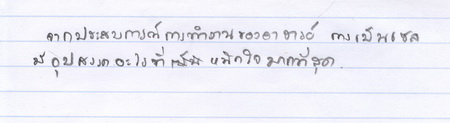 จากประสบการณ์การทำงานของอาจารย์ การเป็นเซล
มีอุปสรรคอะไรที่ หนักใจมากที่สุด